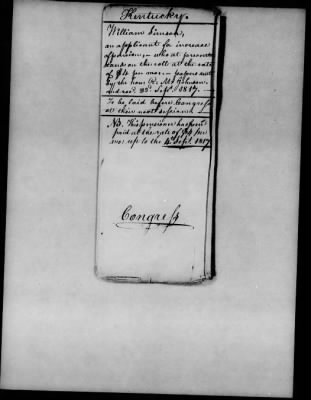 Kentucky.
William Simson,
an applicant for increase
of pension, - who at present
stands on the roll at the rate
of $4 per mo. - papers sent
by the hon. R. M. Johnson.
and recd. Sept. 1817.
To be laid before Congress
at their next session.
NB. This pensioner has been
paid at the rate of $4 per
mo. up to the 4th Sept. 1817
Congress